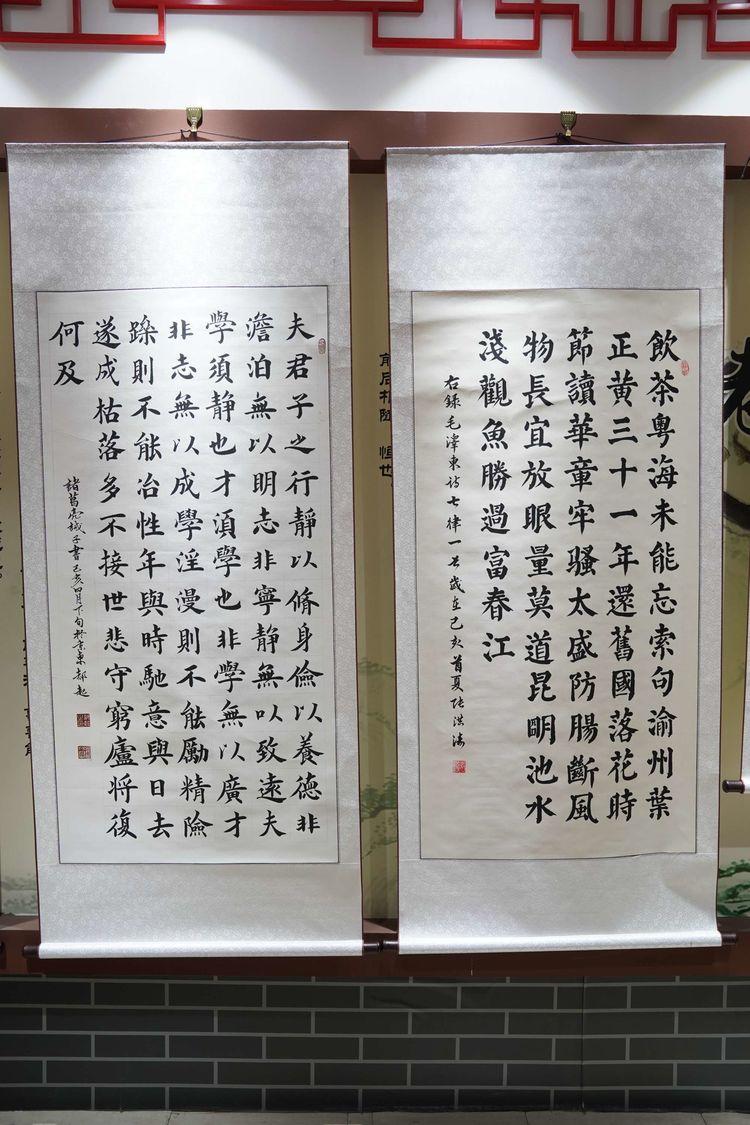 飲茶粵海未能忘索句渝州葉
正黃三十一年還舊國落花時
節讀華章牢騷太盛防腸斷風
物長宜放眼量莫道昆明池水
淺觀魚勝過富春江
右錄毛澤東詩七律一首歲在己亥首夏洪海
夫君子之行靜以脩身儉以養德非
澹泊無以明志非寧靜無以致遠夫
學須靜也才須學也非學無以廣才
非志無以成學淫漫則不能勵精險
躁則不能冶性年與時馳意與日去
遂成枯落多不接世悲守窮廬將復
何及
諸葛亮誡子書己亥四月下旬於京東郝起
恒也